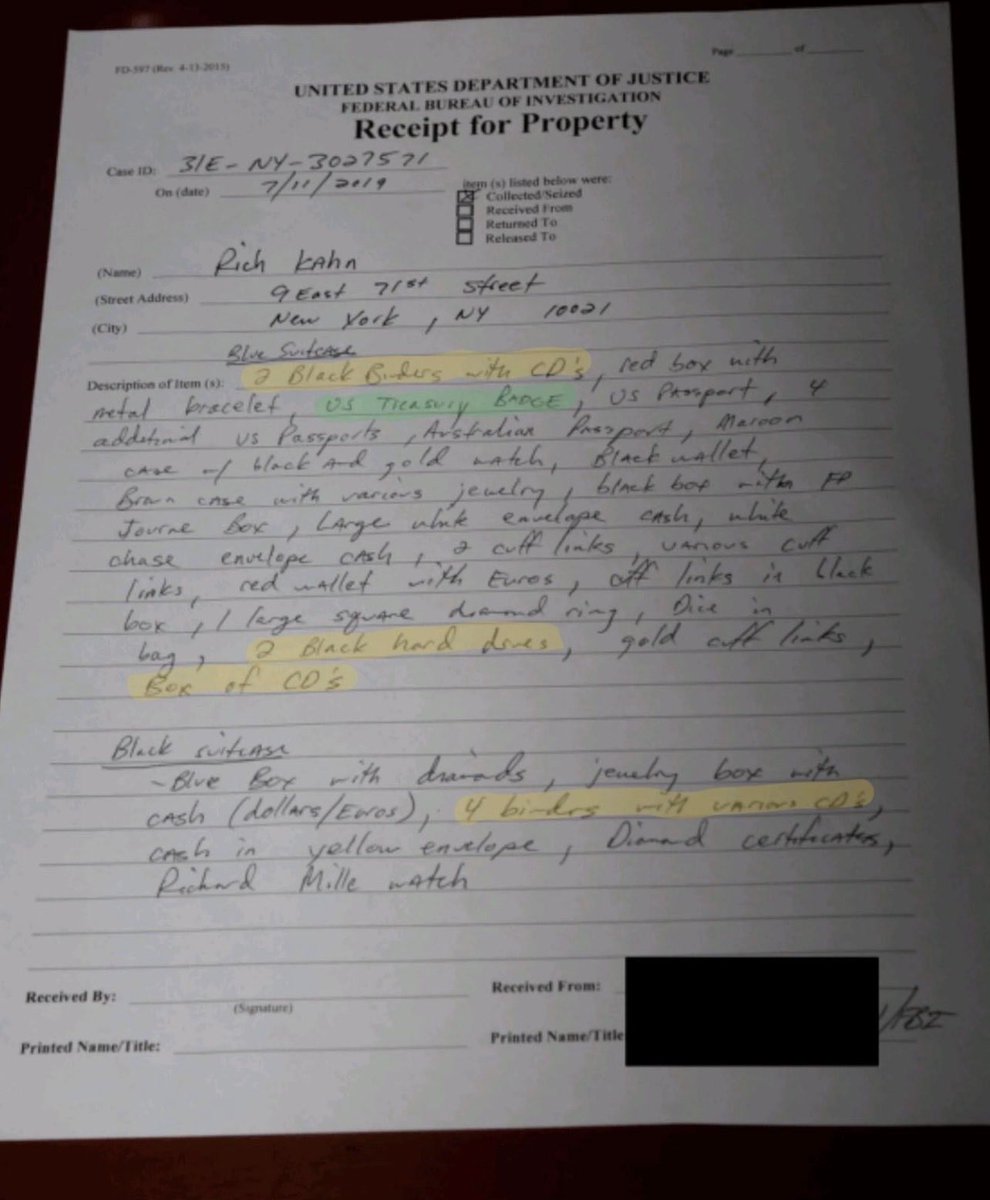 FD-597 (Rev. 4-13-2015)
Page of
UNITED STATES DEPARTMENT OF JUSTICE
FEDERAL BUREAU OF INVESTIGATION
Receipt for Property
Case ID: 31E-NY-3027571
On (date) 7/11/2019
item (s) listed below were:
Collected/Seized
Received From
Returned To
Released To
(Name) Rich Kahn
(Street Address) 9 East 71st Street
(City) New York, NY 10021
Blue Suitcase
Description of Item (s): 2 Black Binders with CD's, red box with
metal bracelet, US Treasury BADGE, US Passport, 4
additional US Passports, Australian Passport, Maroon
case w/ black and gold watch, Black wallet,
Brown case with various jewelry, black box with FP
Journe Box, Large white envelope cash, white
chase envelope cash, 2 cuff links, various cuff
links, red wallet with Euros, cuff links in black
box, 1 large square diamond ring, Dice in
bag, 2 Black hard drives, gold cuff links,
Box of CD's
Black suitcase
- Blue Box with diamonds, jewelry box with
cash (dollars/Euros), 4 binders with various CD's,
cash in yellow envelope, Diamond certificates,
Richard Mille watch
Received By:
(Signature)
Received From:
Printed Name/Title:
Printed Name/Title
/FBI